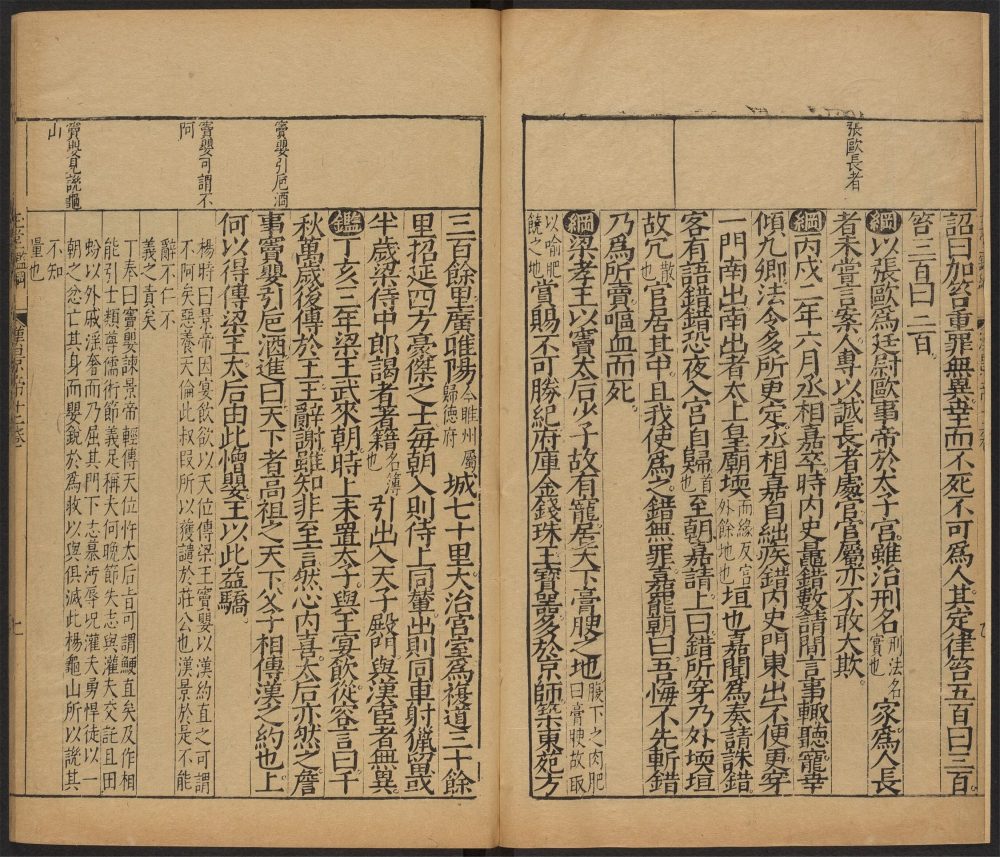 張歐長者
詔曰加笞重罪無異幸而不死不可為人其定律笞五百曰三百
笞三百曰二百
綱以張歐為廷尉歐事帝於太子宮雖治刑名刑法名實也家為人長
者未嘗言案人專以誠長者處官官屬亦不敢大欺
綱丙戌二年六月丞相嘉卒時内史鼂錯數請間言事輙聽寵幸
傾九卿法令多所更定丞相嘉自絀疾錯内史門東出不便更穿
一門南出南出者太上皇廟堧而緣反宮外餘地也垣也嘉聞為奏請誅錯
客有語錯錯恐夜入宮自歸首也至朝嘉請上曰錯所穿乃外堧垣
故冗散也官居其中且我使為之錯無罪嘉罷朝曰吾悔不先斬錯
乃為所賣嘔血而死
綱梁孝王以竇太后少子故有寵居天下膏腴之地腹下之肉肥曰膏腴故取
以喻肥饒之地賞賜不可勝紀府庫金錢珠玉寶器多於京師築東苑方
竇嬰引巵酒
竇嬰可謂不
阿
竇嬰見説龜
山
三百餘里廣睢陽今睢州屬歸德府城七十里大治宮室為複道三十餘
里招延四方豪傑之士每朝入則侍上同輦出則同車射獵留或
半歲梁侍中郎謁者著籍名簿也引出入天子殿門與漢宦者無異
鑑丁亥三年梁王武來朝時上未置太子與王宴飲從容言曰千
秋萬歲後傳於王王辭謝雖知非至言然心内喜太后亦然之詹
事竇嬰引巵酒進曰天下者高祖之天下父子相傳漢之約也上
何以得傳梁王太后由此憎嬰王以此益驕
楊時曰景帝因宴飲欲以天位傳梁王竇嬰以漢約直之可謂
不阿矣惡養天倫此叔叚所以獲譴於莊公也漢景於是不能
辭不仁不
義之責矣
丁奉曰竇嬰諫景帝輕傳天位忤太后旨可謂鯁直矣及作相
能引士類尊儒術節義足稱夫何晚節失志與灌夫交託且田
蚡以外戚淫奢而乃屈其門下志慕汚辱况灌夫勇悍徒以一
朝之忿亡其身而嬰銳於為救以與俱滅此楊龜山所以說其
不知
量也